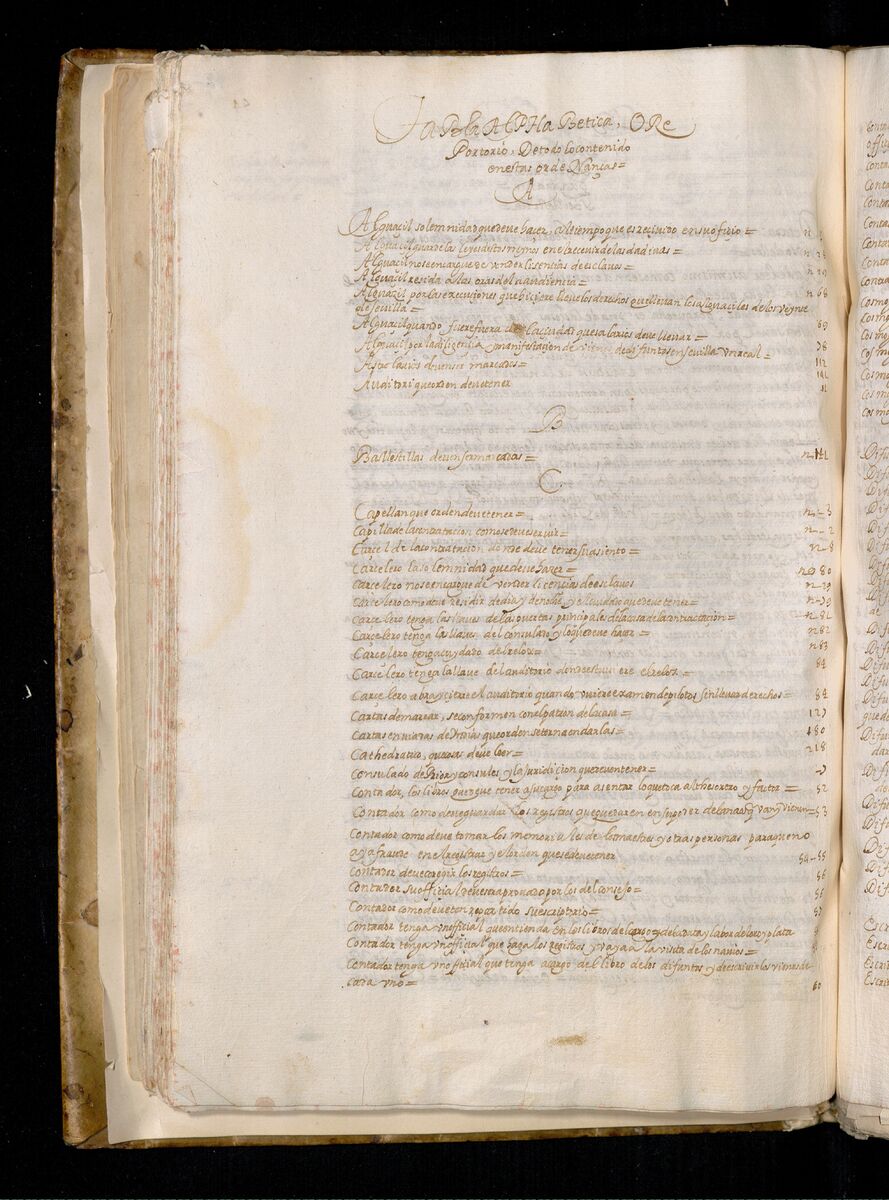 Tabla Alphabetica, O Re
Portorio, De todo lo contenido
en estas ordenanças =
A
Alguaçil solemnidad que deve hacer, al tiempo que es recivido en su ofiçio =
Alguaçil guarde las leyes destos reynos en el reçevir de las dadivas =
Alguaçil no se encargue de vender liçençias de esclavos = 29
Alguaçil resida a las oras del audiencia = n 68
Alguaçil por las execuçiones que hiçiere lleve los derechos que llevan los alguaçiles de los veynte
de sevilla =
Alguaçil quando fuere fuera de la çiudad que salarios deve llevar = 69
Alguaçil por la diligençia manifestaçion de vienes de difuntos en sevilla un real = 78
Astrolavios deven ser marcados = 142
Auditori que orden deve tener
B
Ballestillas deven ser marcadas = n 141
C
Capellan que orden deve tener = n - 3
Capilla de la contratacion como se deve servir = n - 2
Carçel de la contratacion donde deve tener su asiento = n - 8
Carcelero la solemnidad que deve hazer = n 80
Carcelero no se encargue de vender licencias de esclavos n - 29
Carcelero como deve residir de dia y de noche y el cuidado que deve tener = n - 79
Carcelero tenga las llaves de las puertas principales de la casa de la contractacion = n - 81
Carcelero tenga las llaves del consulado y lo que deve hacer = n 82
Carcelero tenga cuydado del relox = n 83
Carcelero tenga la llave del auditorio donde estuviere el relox = 84
Carcelero abra y cierre el auditorio quando uviere examen de pilotos sin llevar derechos = 84
Cartas de marear, se conformen con el patron de la casa = 127
Cartas enviadas de Yndias que orden se terna en darlas = 180
Cathedratico, que cosas deve leer = 218
Consulado de Prior y consules y la juridicion que deve tener = 7
Contador, los libros que deve tener a su cargo para asentar lo que toca al thesorero y factor = 52
Contador como deve guardar los registros que quedaren en su poder de la naos que van y vienen = 53
Contador como deve tomar los memoriales de los maestres y otras personas para que no
aya fraude en el registrar y el orden que se deve tener 54 - 55
Contador deve coregir los registros = 56
Contador su official deve estar aprovado por los del consejo = 56
Contador como deve ten repartido su escriptorio = 57
Contador tenga un official que entienda en los libros de cargo y de la data y labor del oro y plata
Contador tenga un official que haga los registros y vaya a la visita de los navios =
Contador tenga un ofiçial que tenga a cargo el libro de los difuntos y de escrivir los vienes de
cada uno = 60